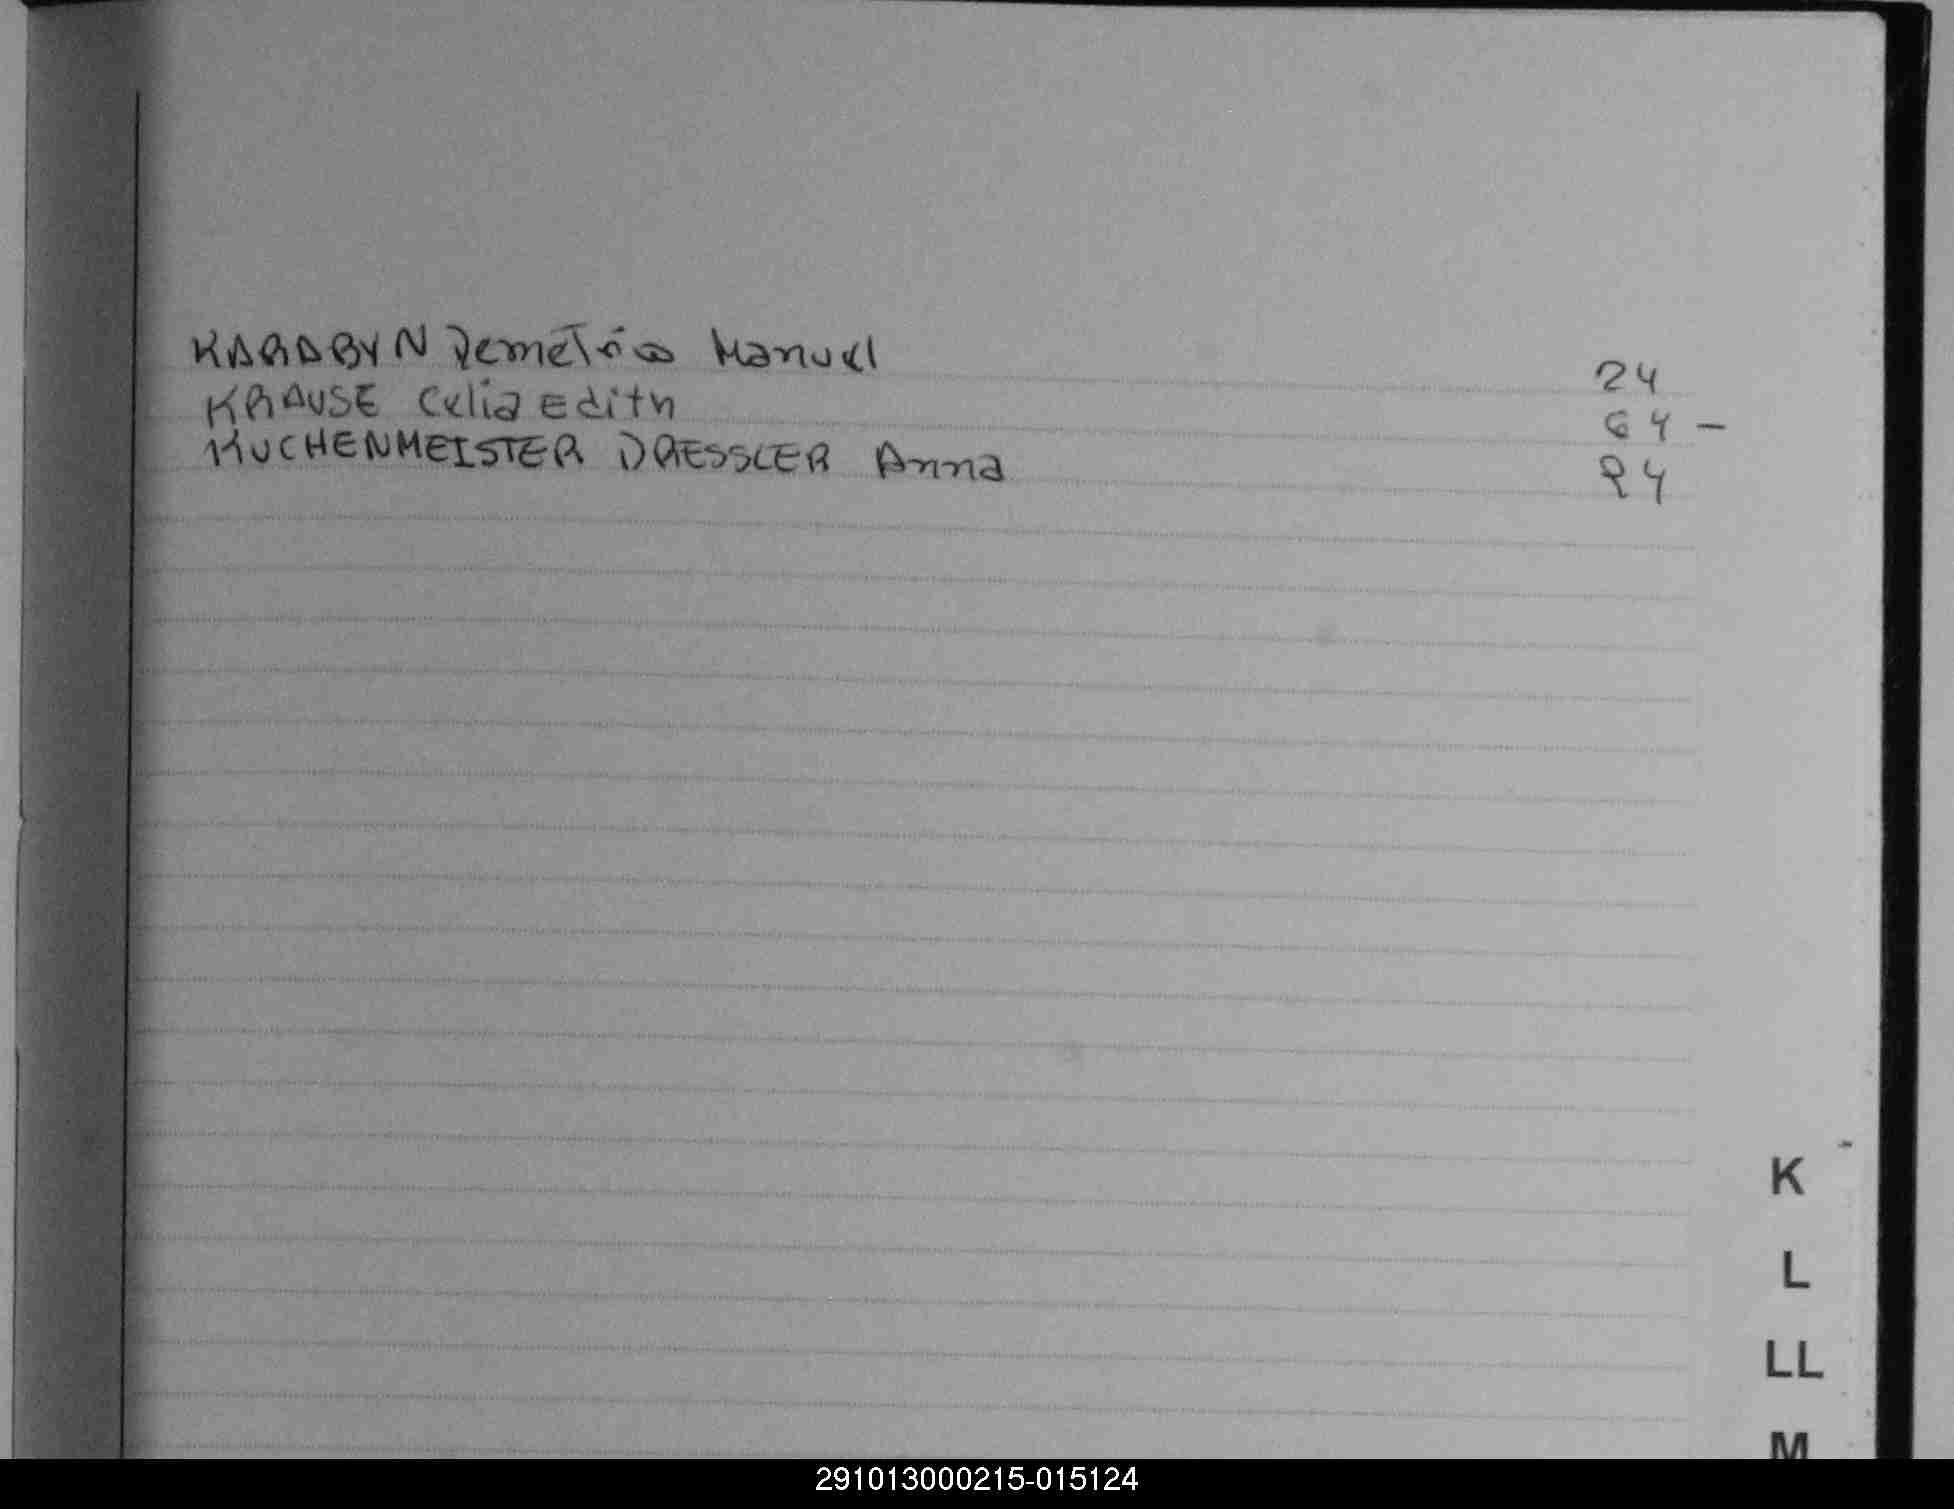 KARABYN Demetrio Manuel 24
KRAUSE Celia Edith 64 -
KUCHENMEISTER DRESSLER Anna 84
K
L
LL
M
291013000215-015124